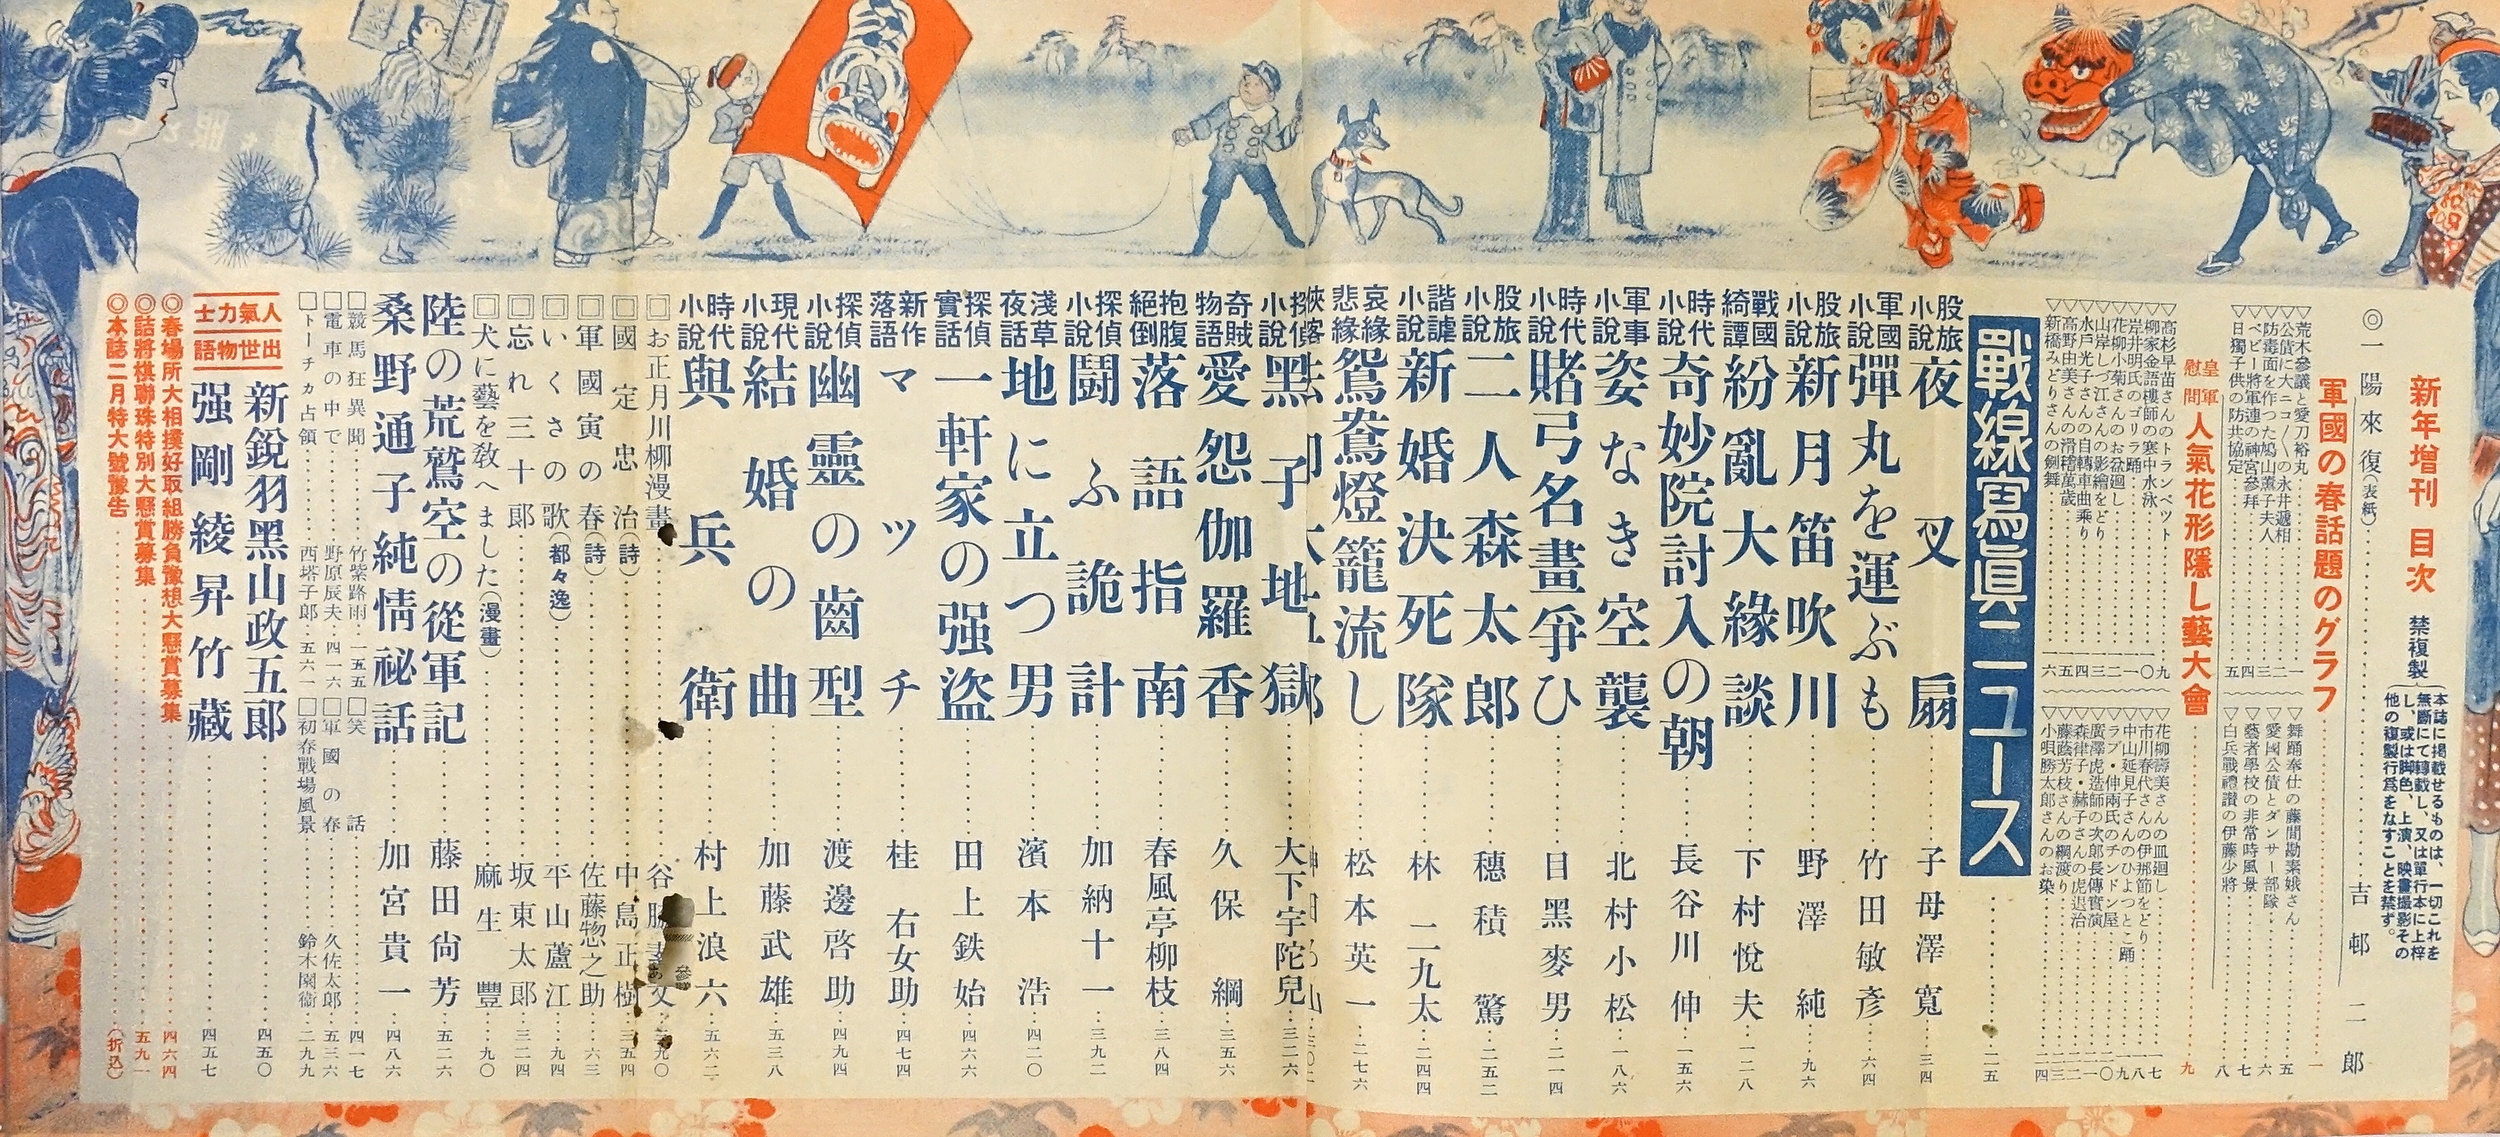 新年增刊 目次
禁複製
本誌に掲載せるものは、一切これを
無斷にて轉載し、又は單行本に上梓
し、或は脚色、上演、映畫撮影その
他の複製行爲をなすことを禁ず。
◎一陽來復(表紙)……吉邨二郎
軍國の春話題のグラフ……一
▽荒木參議と愛刀裕丸……一
▽公債に大ニコ〳〵の永井遞相……二
▽防毒面を作つた鳩山薰子夫人……三
▽ベビー將軍連の神宮參拜……四
▽日獨子供の防共協定……五
▽舞踊奉仕の藤間勘素娥さん……五
▽愛國公債とダンサー部隊……六
▽藝者學校の非常時風景……七
▽白兵戰禮讃の伊藤少將……八
皇軍慰問 人氣花形隱し藝大會……九
▽高杉早苗さんのトランペット……九
▽柳家金語樓師の寒中水泳……一〇
▽岸井明氏のゴリラ踊……一一
▽花柳小菊さんのお盆廻し……一二
▽山岸しづ江さんの影繪をどり……一三
▽水戸光子さんの自轉車曲乘り……一四
▽高野由美さんの滑稽萬歲……一五
▽新橋みどりさんの劍舞……一六
▽花柳壽美さんの皿廻し……一七
▽市川春代さんの伊那節をどり……一八
▽中山延見子さんのひよつとこ踊……一九
▽ラブ・伸兩氏のチンドン屋……二〇
▽廣澤虎造師の次郎長傳實演……二一
▽森律子・赫子さんの虎退治……二二
▽藤蔭芳枝さんの綱渡り……二三
▽小唄勝太郎さんのお染……二四
戰線寫眞ニュース……二五
股旅小說 夜叉扇……子母澤寬……三四
軍國小說 彈丸を運ぶも……竹田敏彥……六四
股旅小說 新月笛吹川……野澤純……九六
戰國綺譚 紛亂大緣談……下村悅夫……一二八
時代小說 奇妙院討入の朝……長谷川伸……一五六
軍事小說 姿なき空襲……北村小松……一八六
時代小說 賭弓名畫爭ひ……目黑麥男……二一四
股旅小說 二人森太郎……穗積驚……二五二
諧謔小說 新婚決死隊……林二九太……二四四
哀緣悲緣 鴛鴦燈籠流し……松本英一……二七六
探偵小說 黑子地獄……大下宇陀兒……三二六
奇賊物語 愛怨伽羅香……久保綱……三五六
抱腹絕倒 落語指南……春風亭柳枝……三八四
探偵小說 鬪ふ詭計……加納十一……三九二
淺草夜話 地に立つ男……濱本浩……四二〇
探偵實話 一軒家の强盜……田上鉄始……四六六
新作落語 マッチ……桂右女助……四七四
探偵小說 幽靈の齒型……渡邊啓助……四九四
現代小說 結婚の曲……加藤武雄……五三八
時代小說 與兵衛……村上浪六……五六二
□お正月川柳漫畫……谷脇
□國定忠治(詩)……中島正樹……三五四
□軍國寅の春(詩)……佐藤惣之助……六三
□いくさの歌(都々逸)……平山蘆江……九四
□忘れ三十郎……坂東太郎……三二四
□犬に藝を敎へました(漫畫)……麻生豐……九〇
陸の荒鷲空の從軍記……藤田尙芳……五二六
桑野通子純情祕話……加宮貴一……四八六
□競馬狂異聞……竹紫路雨……一五五
□電車の中で……野原辰夫……四一六
□トーチカ占領……西塔子郎……五六一
□笑話……四一七
□軍國の春……久佐太郎……五三六
□初春戰場風景……鈴木園衛……二九九
人氣力士出世物語
新銳羽黑山政五郎……四五〇
强剛綾昇竹藏……四五七
◎春場所大相撲好取組勝負豫想大懸賞募集……四六四
◎詰將棋聯珠特別大懸賞募集……五九一
◎本誌二月特大號豫告……(折込)